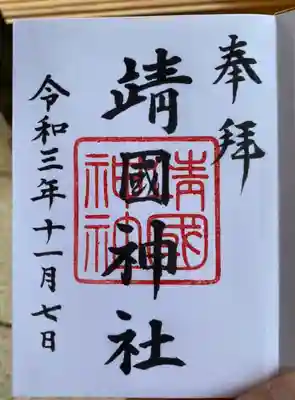 奉拝
靖國神社
令和三年十一月七日
靖國
神社